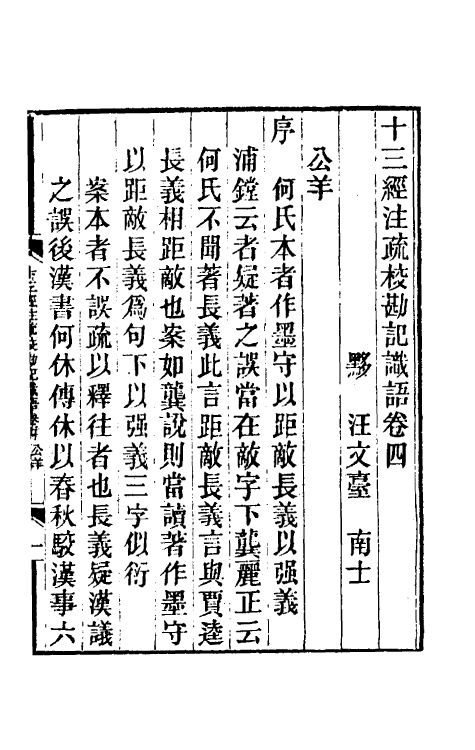 十三經注疏挍勘記識語卷四
黟　汪文臺　南士
公羊
序　何氏本者作墨守以距敵長義以强義
浦鏜云者疑著之誤當在敵字下龔麗正云
何氏不聞著長義此言距敵長義言與賈逵
長義相距敵也案如龔說則當讀著作墨守
以距敵長義爲句下以强義三字似衍
案本者不誤疏以釋往者也長義疑漢議
之誤後漢書何休傳休以春秋駮漢事六
十三經注疏挍勘記識語卷四　公羊　一